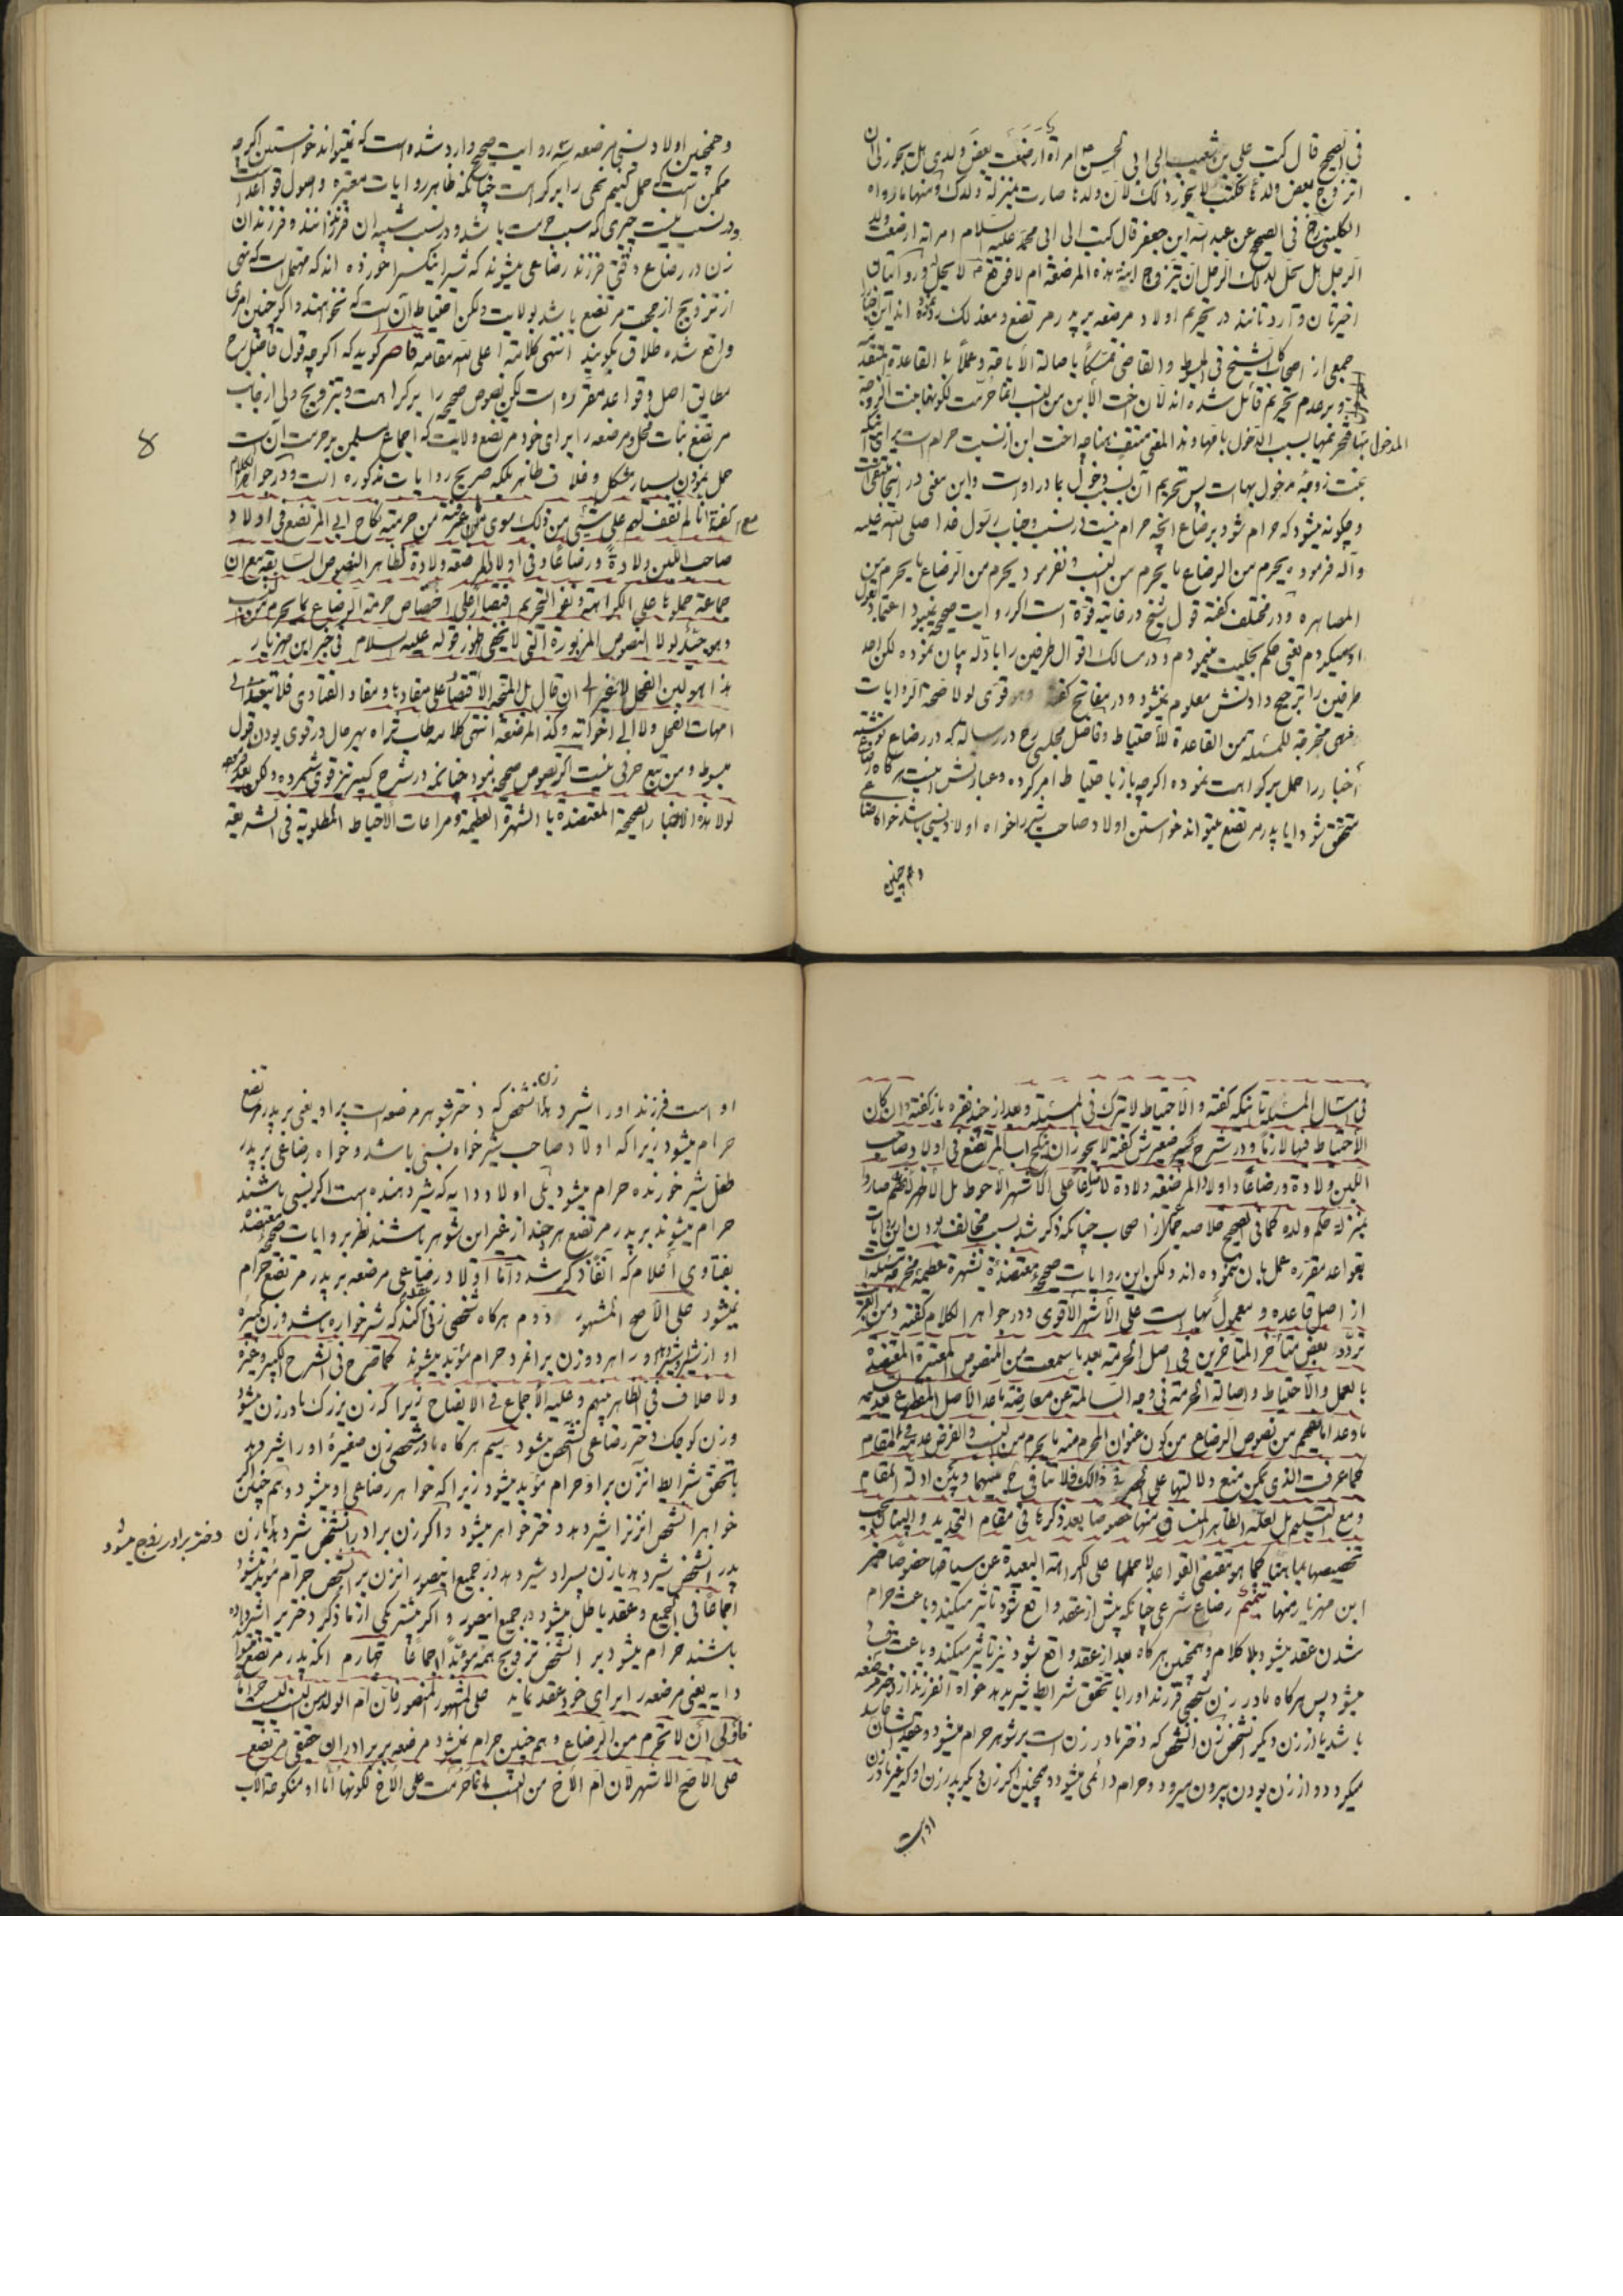 فی الصحیح قال کتب علی بن شعیب الی ابی الحسن ع امراة ارضعت بعض ولدی هل یجوز لی ان
اتزوج بعض ولدها فکتب لا یجوز ذلک لان ولدها صارت بمنزلة ولدک و منها ما رواه
الکلینی فی الصحیح عن عبد الله ابن جعفر قال کتبت الی ابی محمد علیه السلام امراته ارضعت ولد
الرجل هل یحل لذلک الرجل ان یتزوج ابنة هذه المرضعة ام لا فوقع ع لا یحل له و روایتان
اخیرتان واردتانند در تحریم اولاد مرضعه بر پدر مرتضع و معذلک
جمعی از اصحاب کالشیخ فی المبسوط و القاضی تمسکاً باصالة الاباحة و عملاً بالقاعدة المتقدمة
و بر عدم تحریم قائل شده اند لان اخت الابن من النسب انما حرمت لکونها بنت الزوجة
المدخول بها فتحریمها بسبب الدخول بامها و هذا المعنی منتف هنا چه اخت ابن از نسب حرام است برای اینکه
بنت زوجه مدخول بها است پس تحریم آن بسبب دخول بمادر اوست و این معنی در اینجا منتفی است
و چگونه میشود که حرام شود برضاع آنچه حرام نیست در نسب و جناب رسول خدا صلی الله علیه
و آله فرموده یحرم من الرضاع ما یحرم من النسب و نفرمود یحرم من الرضاع ما یحرم من
المصاهره و در مختلف گفته قول شیخ در غایت قوة است اگر روایت صحیحه نمیبود اعتماد بقول
او میکردم یعنی حکم بحلیت مینمودم و در مسالک اقوال طرفین را با ادله بیان نموده لکن احد
طرفین را ترجیح دادنش معلوم نمیشود و در مفاتیح گفته و هو قوی لولا صحة الروایات
فهی مخرجة للمسئلة من القاعدة للاحتیاط و فاضل مجلسی رح در رساله که در رضاع نوشته
اخبار را حمل بر کراهت نموده اگرچه باز باحتیاط امر کرده و عبارتش اینست هرگاه رضاع
متحقق شود آیا پدر مرتضع میتواند خواستن اولاد صاحب شیر را خواه اولاد نسبی باشد خواه رضاعی
و همچنین
و همچنین اولاد نسبی مرضعه سه روایت صحیح وارد شده است که نمیتواند خواستن اگرچه
ممکن است که حمل کنیم نهی را بر کراهت چنانکه ظاهر روایات معتبره و اصول قواعد است
و در نسب نیست چیزی که سبب حرمت باشد و در نسب شبیه ان فرزند زنند و فرزندان
زن در رضاع وقتی فرزند رضاعی میشوند که شیر اینکس را خورده اند که محتمل است که نهی
از تزویج از جهت مرتضع باشد بولایت ولکن احتیاط آن است که نخواهند و اگر چنین امری
واقع شده طلاق بگویند انتهی کلامه اعلی الله مقامه قاصر گوید که اگرچه قول فاضل رح
مطابق اصل و قواعد مقرره است لکن نصوص صحیحه را بر کراهت و تزویج ولی از جانب
مرتضع بنات فحل و مرضعه را برای خود مرتضع ولایت که اجماع مسلمین بر حرمت آن است
حمل نمودن بسیار مشکل و خلاف ظاهر بلکه صریح روایات مذکوره است و در جواهر الکلام
گفته انا لم نقف لهم علی شیء من ذلک سوی ما عرفته من حرمة نکاح ابی المرتضع فی اولاد
صاحب اللبن ولادةً و رضاعاً و فی اولاد المرضعة ولادة لظاهر النصوص السابقة مع ان
جماعة حملوها علی الکراهة و نفو التحریم اقتصارا علی اختصاص حرمة الرضاع بما یحرم من النسب
و هو جید لولا النصوص المزبورة التی لا یخفی ظهور قوله علیه السلام فی خبر ابن مهزیار
هذا هو لبن الفحل لا غیر الی ان قال بل المتجه الاقتصار علی مفادها و مفاد الفتاوی فلا تتعدی الی
امهات الفحل و لا الی اخواته و کذا المرضعة انتهی کلامه طاب ثراه بهر حال در قوی بودن قول
مبسوط و من تبع حرفی نیست اگر نصوص صحیحه نبود چنانچه در شرح کبیر نیز قوی شمرده ولکن
لولا هذه الاخبار الصحیحة المعتضدة بالشهرة العظیمة و مراعات الاحتیاط المطلوبة فی الشریعة
۸
فی امثال المسئلة تا اینکه گفته و الاحتیاط لا یترک فی المسئلة و بعد از چند فقره باز گفته و ان کان
الاحتیاط فیها لازماً و در شرح صغیرش گفته لا یجوز ان ینکح اب المرتضع فی اولاد صاحب
اللبن ولادة و رضاعاً و اولاد المرضعة ولادة لا رضاعا علی الاشهر الاحوط بل الاظهر لانهم صاروا
بمنزلة حکم ولده کما فی الصحیح خلاصه جمعی از اصحاب چنانکه ذکر شد بسبب مخالف بودن این روایات
بقواعد مقرره عمل بآن ننموده اند ولکن این روایات صحیحه معتضدة بشهرة عظیمة مخرجه مسئله
از اصل قاعده و معمول بها است علی الاشهر الاقوی و در جواهر الکلام گفته و من الغریب
تردد بعض متأخر المتأخرین فی اصل الحرمة بعد ما سمعت من النصوص المعتبرة المعتضدة
بالعمل و الاحتیاط و اصالة الحرمة فی وجه السالمة عن معارضة ما عدا الاصل المقطوع بعدمه
و ما عدا ما یفهم من نصوص الرضاع من کون عنوان المحرم منه ما یحرم من النسب و الفرض عدمه فی المقام
کما عرفت الذی یمکن منع دلالتها علی الحصر فی ذالک فلا تنافی ح بینهما و بین ادلة المقام
و مع التسلیم بل لعله الظاهر المنساق منها خصوصا بعد ذکرها فی مقام التحدید و البیان یجب
تخصیصها بما هنا کما هو مقتضی القواعد لا حملها علی الکراهة البعیدة عن سیاقها خصوصا خبر
ابن مهزیار منها تتمیم رضاع شرعی چنانکه پیش از عقد واقع شود تاثیر میکند و باعث حرام
شدن عقد میشود بلا کلام و همچنین هرگاه بعد از عقد واقع شود نیز تاثیر میکند و باعث
میشود پس هرگاه مادر زن شخصی فرزند او را با تحقق شرایط شیر بدهد خواه آنفرزند از دختر مرضعه
باشد یا از زن دیگر آنشخص زن آنشخص که دختر مادر زن است بر شوهر حرام میشود و عقدشان فاسد
میگردد و از زن بودن بیرون میرود و حرام دائمی میشود و همچنین اگر زن دیگر پدر زن او که غیر مادر زن
او است
او است فرزند او را شیر دهد زن آنشخص که دختر شوهر مرضعه است بر او یعنی بر پدر مرتضع
حرام میشود زیرا که اولاد صاحب شیر خواه نسبی باشد و خواه رضاعی بر پدر
طفل شیر خورنده حرام میشود بلی اولاد دایه که شیر دهنده است اگر نسبی باشند
حرام میشوند بر پدر مرتضع هر چند از غیر این شوهر باشند نظر بروایات صحیحه معتضده
بفتاوی اعلام که آنفا ذکر شد و اما اولاد رضاعی مرضعه بر پدر مرتضع حرام
نمیشود علی الاصح المشهور دوم هرگاه شخصی زنی عقد کند که شیرخواره باشد و زن کبیره
او از شیر او شیر دهد او را هر دو زن بر آنمرد حرام مؤبد میشوند کما صرح فی الشرح الکبیر و غیره
و لا خلاف فی الظاهر بینهم و علیه الاجماع فی الایضاح زیرا که زن بزرگ مادر زن میشود
و زن کوچک دختر رضاعی آنشخص میشود سیم هرگاه مادر شخصی زن صغیرهٔ او را شیر دهد
با تحقق شرایط آنزن بر او حرام مؤبد میشود زیرا که خواهر رضاعی او میشود و هم چنین اگر
خواهر آنشخص آنزنرا شیر دهد دختر خواهر میشود و اگر زن برادر آنشخص شیر دهد یا زن
دختر برادر زوج میشود و
پدر آنشخص شیر دهد یا زن پسر او شیر دهد در جمیع اینصور آنزن بر آنشخص حرام مؤبد میشود
اجماعاً فی الجمیع و عقد باطل میشود در جمیع اینصور و اگر پیشتر یکی از ما ذکر دختر را شیر داده
باشند حرام میشود بر آنشخص تزویج همه مؤبداً اجماعا چهارم آنکه پدر مرتضع میتواند
دایه یعنی مرضعه را برای خود عقد نماید علی المشهور المنصور فان ام الولد من النسب لیست حراماً
فاولی ان لا تحرم من الرضاع و هم چنین حرام نمیشود مرضعه بر برادران حقیقی مرتضع
علی الاصح الاشهر لان ام الاخ من النسب انما حرمت علی الاخ لکونها اُمّا او منکوحة الاب